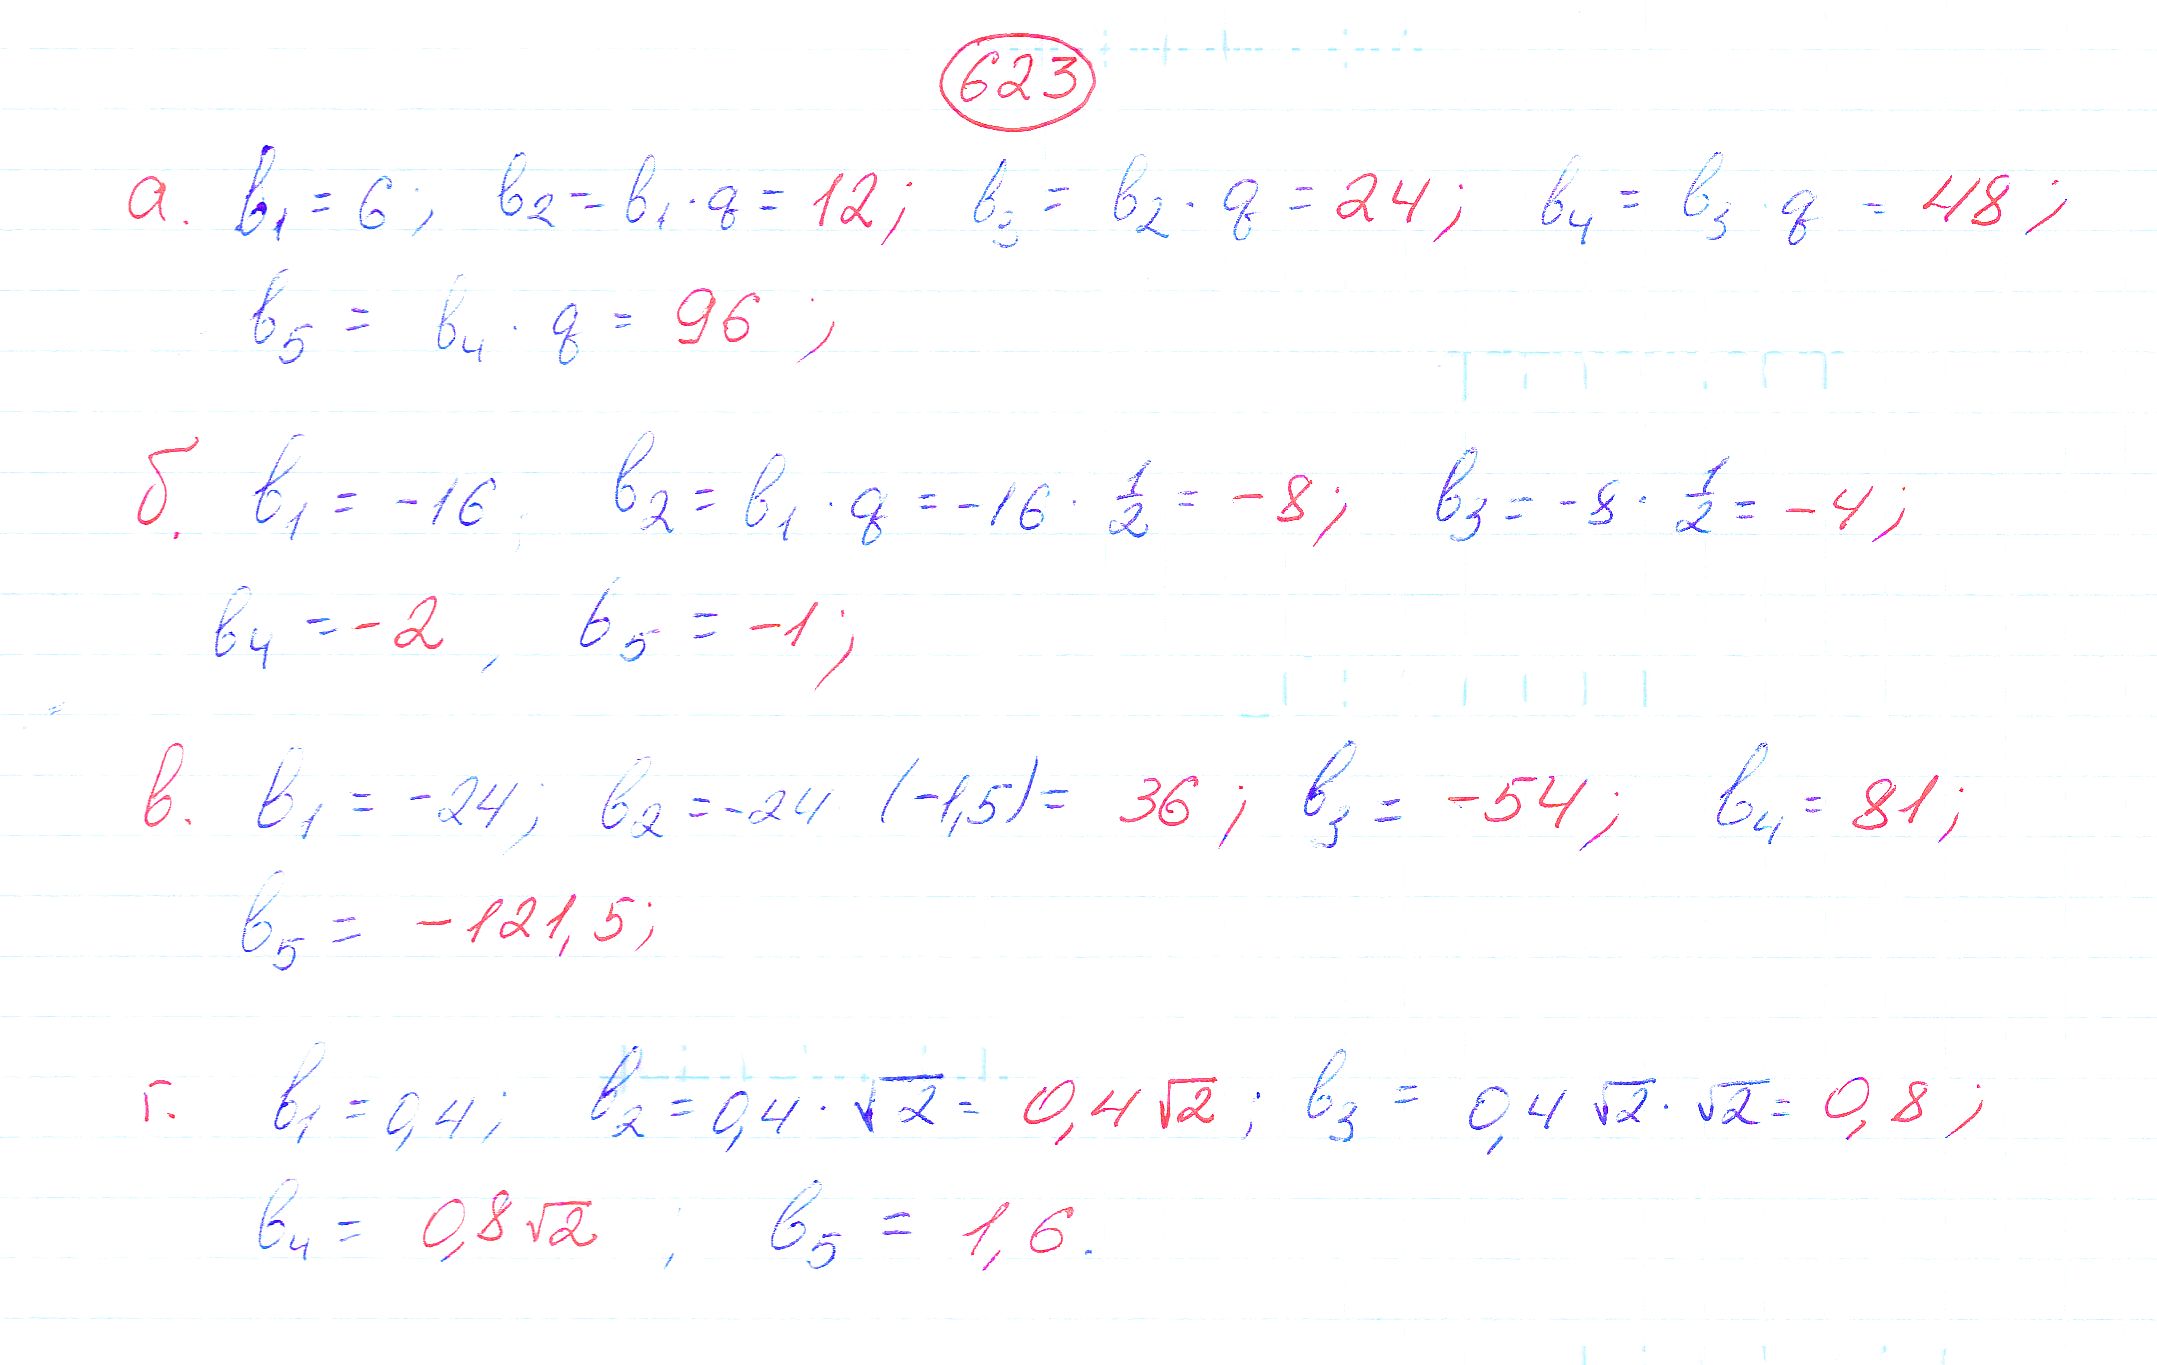 623
а. b₁ = 6; b₂ = b₁ · q = 12; b₃ = b₂ · q = 24; b₄ = b₃ · q = 48;
b₅ = b₄ · q = 96;
б. b₁ = -16; b₂ = b₁ · q = -16 · 1/2 = -8; b₃ = -8 · 1/2 = -4;
b₄ = -2, b₅ = -1;
в. b₁ = -24; b₂ = -24 (-1,5) = 36; b₃ = -54; b₄ = 81;
b₅ = -121,5;
г. b₁ = 0,4; b₂ = 0,4 · √2 = 0,4√2; b₃ = 0,4√2 · √2 = 0,8;
b₄ = 0,8√2; b₅ = 1,6.